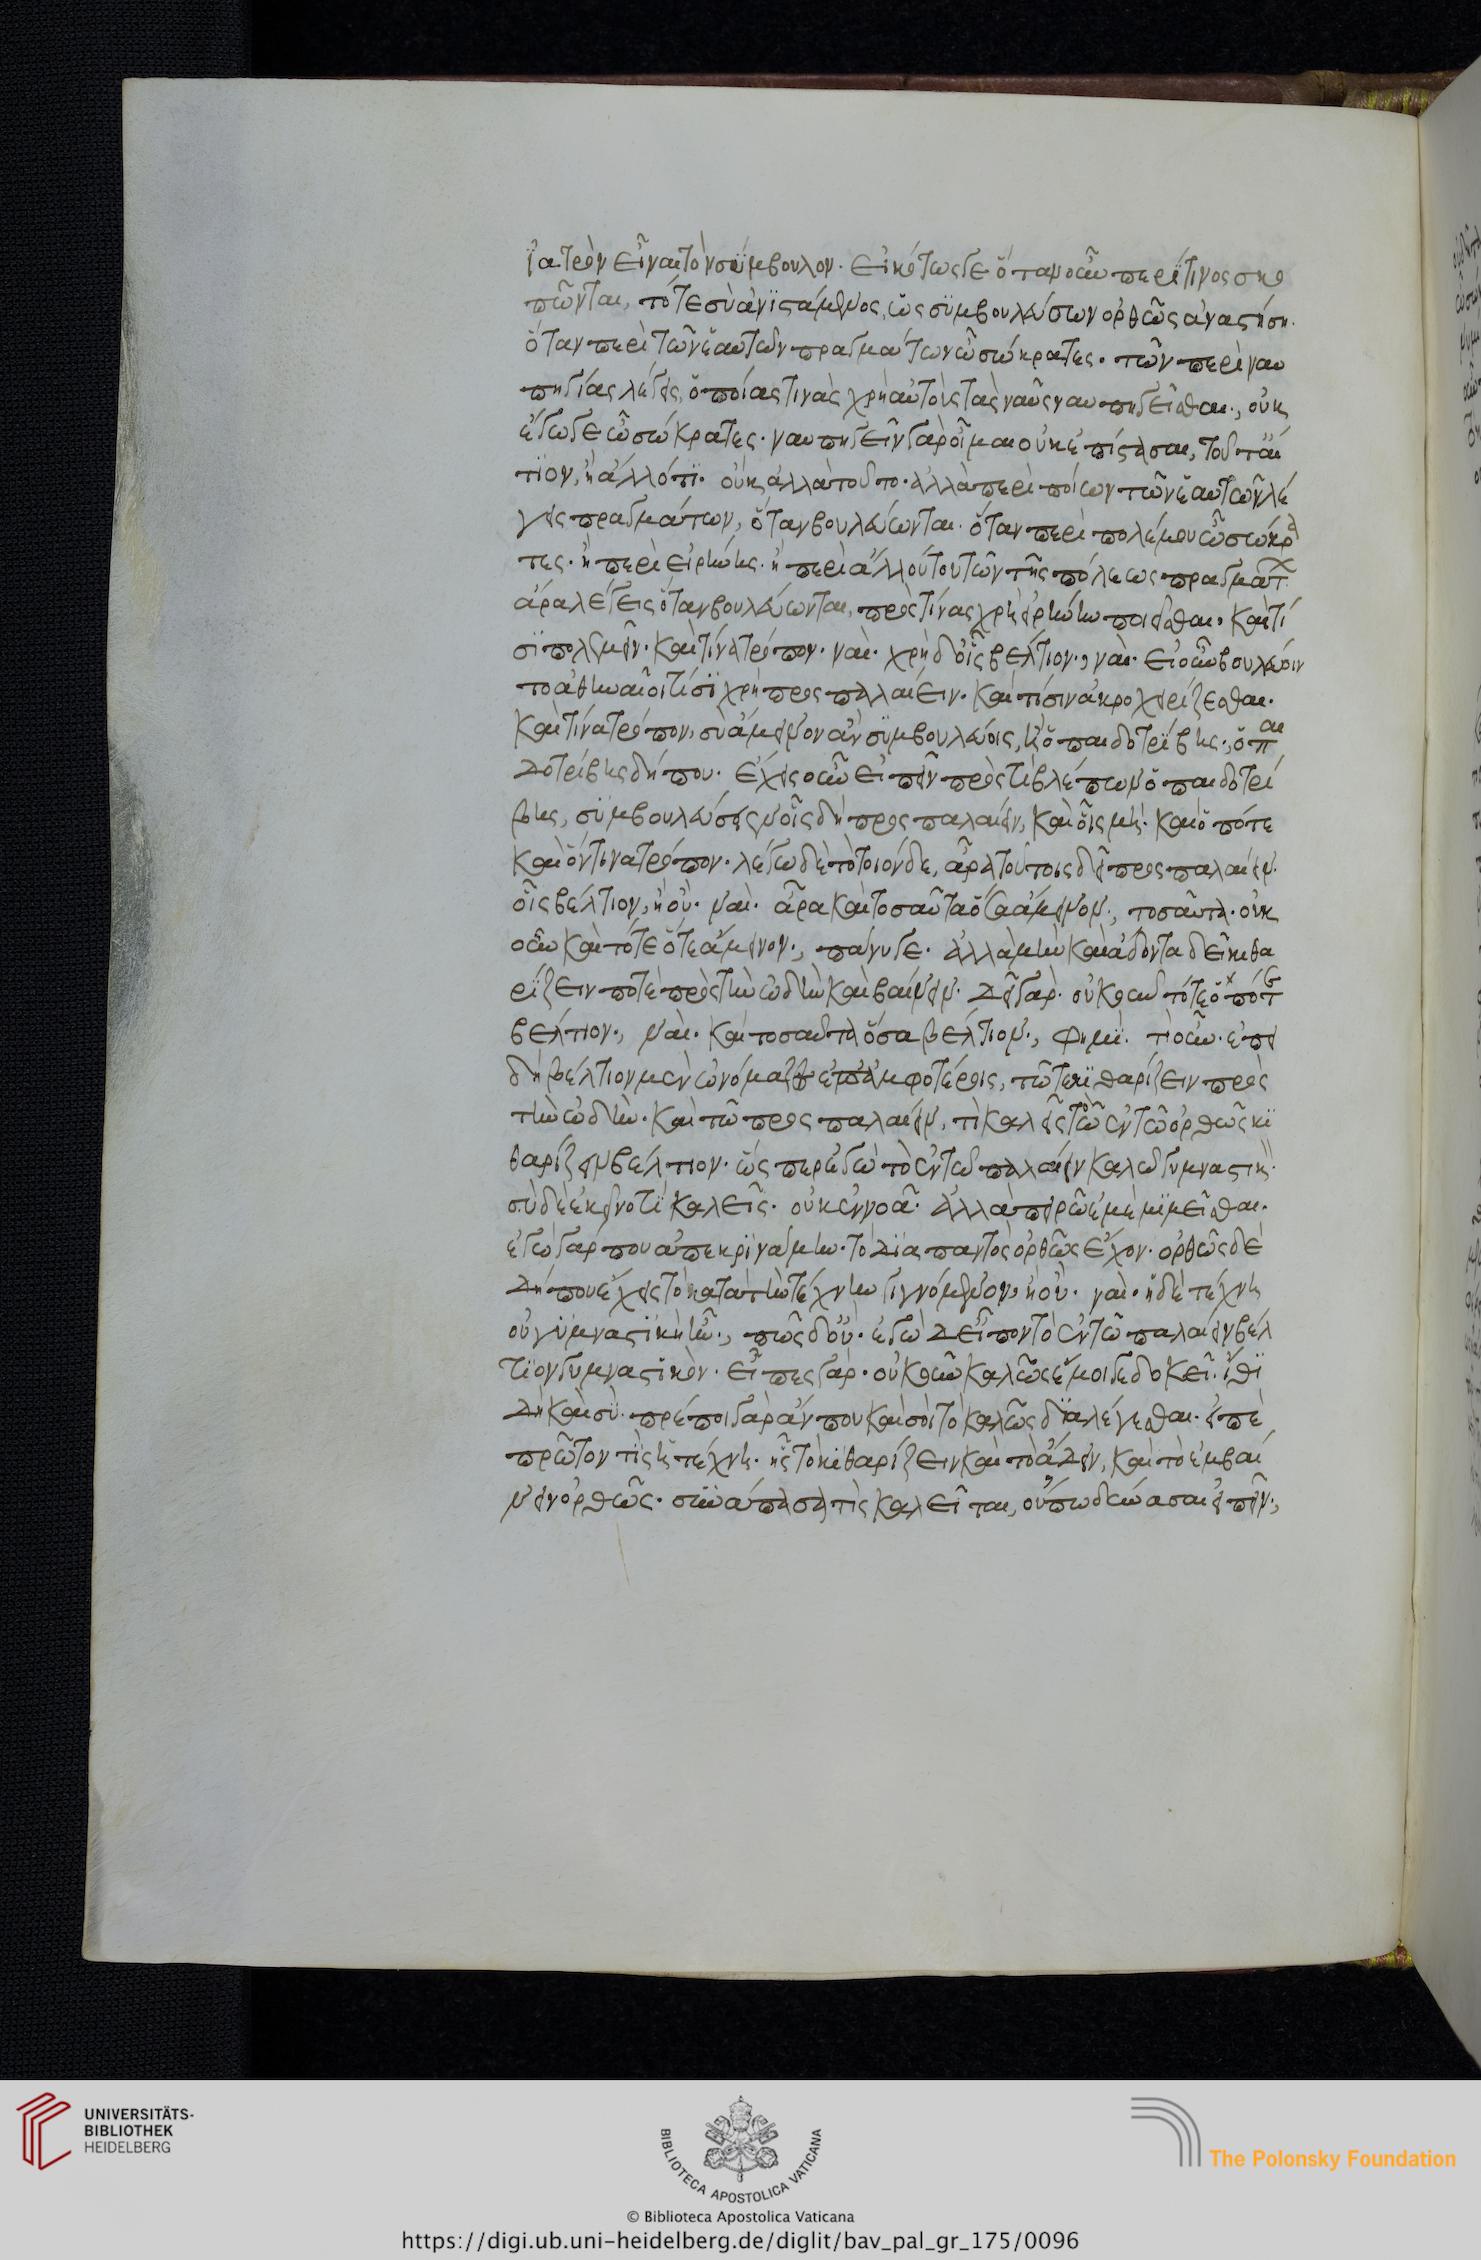 ἰατρὸν εἶναι τὸν σύμβουλον. εἰκότως γε. ὅταν οὖν περί τινος σκο
πῶνται, τότε σὺ ἀνιστάμενος, ὡς συμβουλεύσων ὀρθῶς ἀναστήσῃ.
ὅταν περὶ τῶν ἑαυτῶν πραγμάτων ὦ σώκρατες. τῶν περὶ ναυ
πηγίας λέγεις, ὁποίας τινὰς χρὴ αὐτοὺς τὰς ναῦς ναυπηγεῖσθαι., οὐκ
ἔγωγε ὦ σώκρατες. ναυπηγεῖν γὰρ οἶμαι οὐκ ἐπίστασαι, τοῦτ' αἴ
τιον, ἢ ἄλλό τι. οὐκ ἀλλὰ τοῦτο. ἀλλὰ περὶ ποίων τῶν ἑαυτῶν λέ
γεις πραγμάτων, ὅταν βουλεύωνται. ὅταν περὶ πολέμου ὦ σώκρα
τες. ἢ περὶ εἰρήνης. ἢ περὶ ἄλλου του τῶν τῆς πόλεως πραγμάτ
ἆρα λέγεις ὅταν βουλεύωνται, πρὸς τίνας χρὴ εἰρήνην ποιεῖσθαι. καὶ τί
σι πολεμεῖν. καὶ τίνα τρόπον. ναί. χρὴ δ' οἷς βέλτιον., ναί. εἰ οὖν βουλεύοιν
το ἀθηναῖοι τίσι χρὴ προσπαλαίειν. καὶ τίσιν ἀκροχειρίζεσθαι.
καὶ τίνα τρόπον, σὺ ἄμεινον ἂν συμβουλεύοις, ἢ ὁ παιδοτρίβης., ὁ παι
δοτρίβης δήπου. ἔχεις οὖν εἰπεῖν πρὸς τί βλέπων ὁ παιδοτρί
βης, συμβουλεύσει οἷς δὴ προσπαλαίειν, καὶ οἷς μή. καὶ ὁπότε
καὶ ὅντινα τρόπον. λέγω δὲ τὸ τοιόνδε, ἆρα τούτοις δεῖ προσπαλαίειν.
οἷς βέλτιον, ἢ οὔ. ναί. ἆρα καὶ τοσαῦτα ὅσα ἄμεινον., τοσαῦτα. οὐκ
οῦν καὶ τότε ὅτε ἄμεινον., πάνυ γε. ἀλλὰ μὴν καὶ ᾄδοντα δεῖ κιθα
ρίζειν ποτὲ πρὸς τὴν ᾠδὴν καὶ βαίνειν. δεῖ γάρ. οὐκοῦν τότε ὁπότε
βέλτιον., ναί. καὶ τοσαῦτα ὅσα βέλτιον., φημί. τί οὖν. ἐπει
δὴ βέλτιον μὲν ὠνόμαζες ἐπ' ἀμφοτέροις, τῶ τε κιθαρίζειν πρὸς
τὴν ᾠδὴν. καὶ τῶ προσπαλαίειν, τί καλεῖς τὸ ἐν τῶ ὀρθῶς κι
θαρίζειν βέλτιον. ὥσπερ ἐγὼ τὸ ἐν τῶ παλαίειν καλῶ γυμναστικ.
σὺ δὲ ἐκεῖνο τί καλεῖς. οὐκ ἐννοῶ. ἀλλὰ πειρῶ ἐμὲ μιμεῖσθαι.
ἐγὼ γάρ που ἀπεκρινάμην. τὸ διὰ παντὸς ὀρθῶς ἔχον. ὀρθῶς δὲ
δήπου ἔχει τὸ κατὰ τὴν τέχνην γιγνόμενον, ἢ οὔ. ναί. ἡ δὲ τέχνη
οὐ γυμναστικὴ ἦν., πῶς δ' οὔ. ἐγὼ δ' εἶπον τὸ ἐν τῶ παλαίειν βέλ
τιον γυμναστικόν. εἶπες γάρ. οὐκοῦν καλῶς ἔμοιγε δοκεῖ. ἴθι
δὴ καὶ σὺ. πρέποι γὰρ ἄν που καὶ σοὶ τὸ καλῶς διαλέγεσθαι. εἰπὲ
πρῶτον τίς ἡ τέχνη. ἧς τὸ κιθαρίζειν καὶ τὸ ἄδειν, καὶ τὸ ἐμβαί
νειν ὀρθῶς. συνάπασα τίς καλεῖται, οὔπω δύνασαι εἰπεῖν.,
UNIVERSITÄTS-
BIBLIOTHEK
HEIDELBERG
BIBLIOTECA APOSTOLICA VATICANA
© Biblioteca Apostolica Vaticana
The Polonsky Foundation
https://digi.ub.uni-heidelberg.de/diglit/bav_pal_gr_175/0096